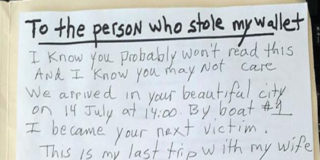 To the person who stole my wallet
I know you probably won't read this
And I know you may not care
We arrived in your beautiful city
on 14 July at 14:00 By boat #1
I became your next victim.
This is my last trip with my wife